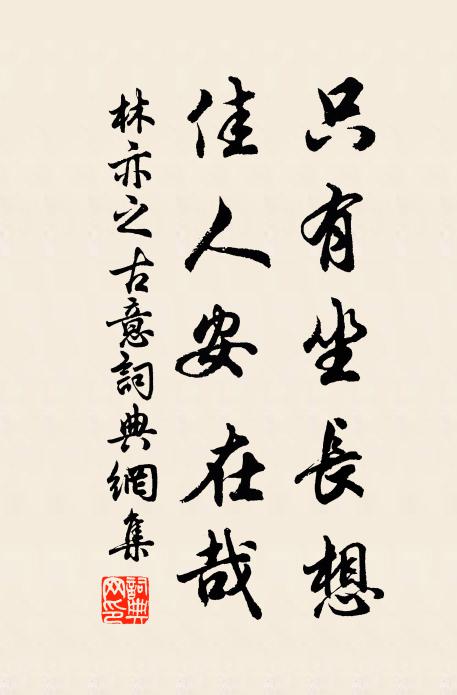 只有坐長想
佳人安在哉
林亦之古意詞典網集
詞典网印